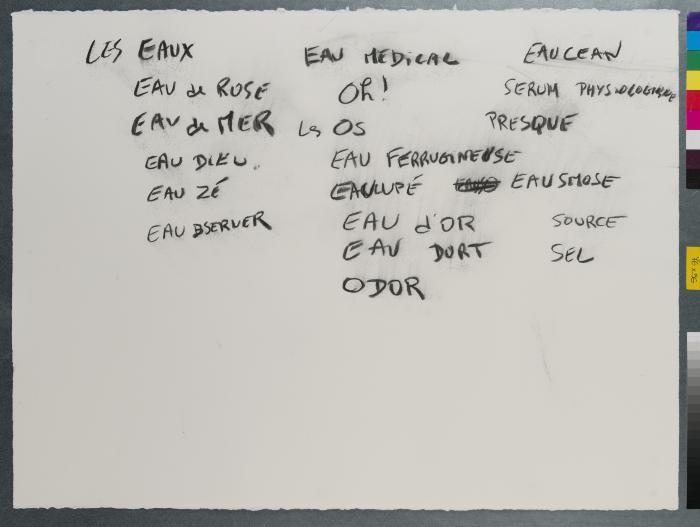 LES EAUX EAU MEDICAL EAUCEAN
EAU de ROSE Oh! SERUM PHYSIOLOGIQUE
EAU de MER Les OS PRESQUE
EAU DIEU. EAU FERRUGINEUSE
EAU ZÉ EAULUPÉ EAUSMOSE
EAU BSERVER EAU d'OR SOURCE
EAU DORT SEL
ODOR